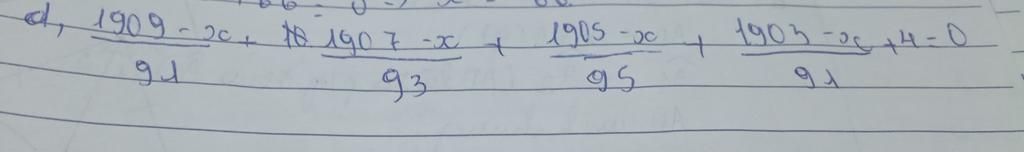 d, (1909 - x)/91 + (1907 - x)/93 + (1905 - x)/95 + (1903 - x)/91 + 4 = 0